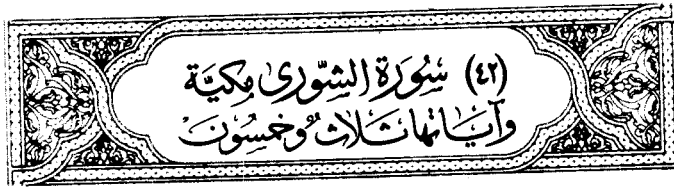 (٤٢) سُورَة الشّورى مكيَّة
وآيَاتها ثَلاثٌ وخمسُونَ